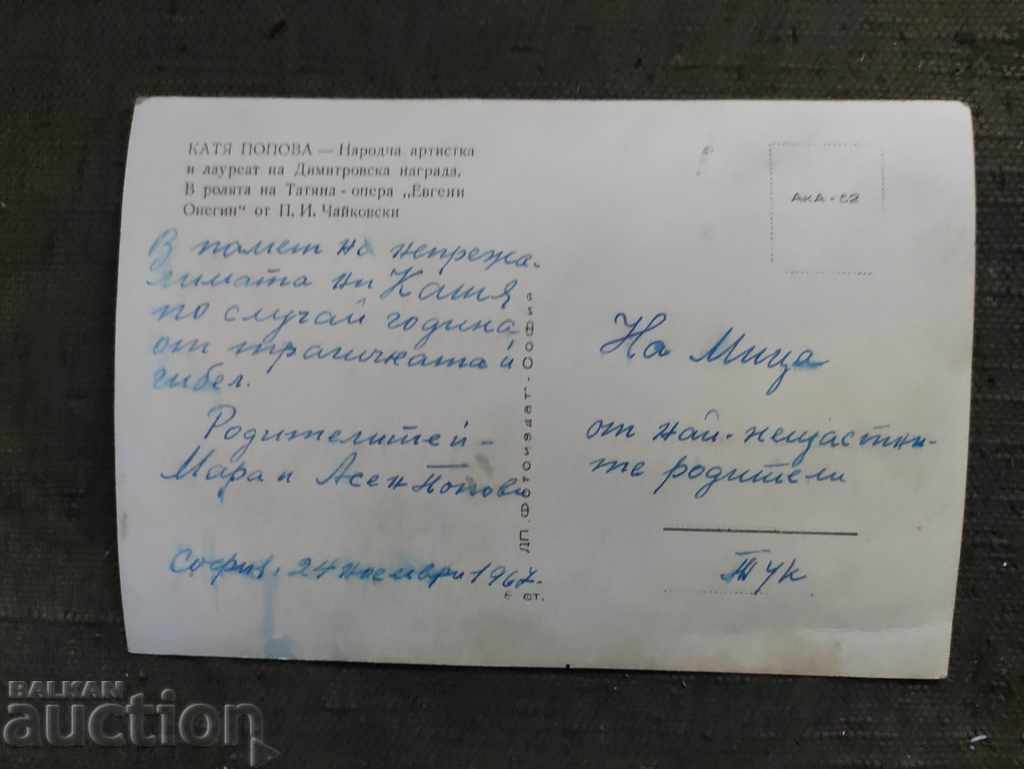 КАТЯ ПОПОВА — Народна артистка
и лауреат на Димитровска награда.
В ролята на Татяна - опера „Евгени
Онегин“ от П. И. Чайковски
В памет на непрежа-
лимата ни Катя
по случай година
от трагичката ѝ
гибел.
Родителите ѝ -
Мара и Асен Попови
София, 24 ноември 1967.
ДП. Фотоиздат - София
6 ст.
АКА - 62
На Мица
от най-нещастни-
те родители
Тук
BALKAN
auction